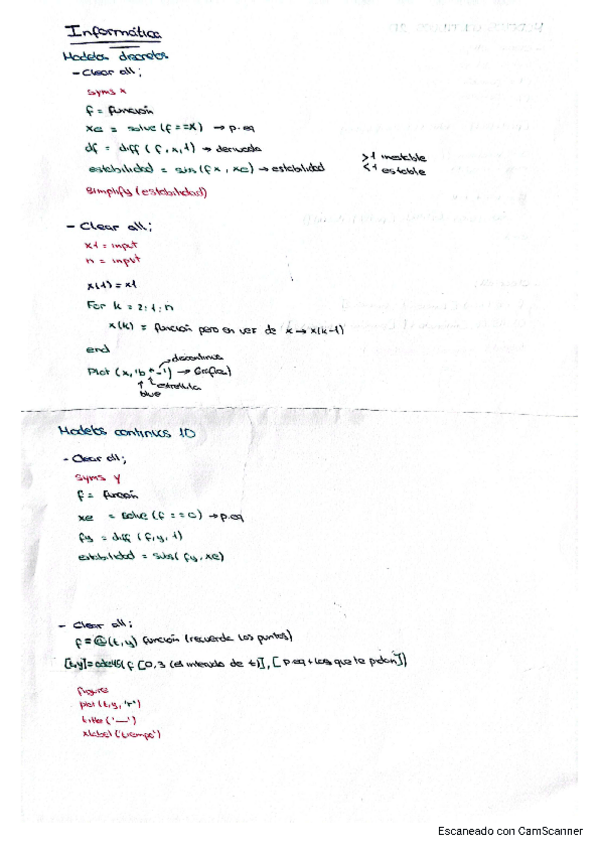 Informática
Modelos discretos
- Clear all;
syms x
f = función
xe = solve (f==x) → p.eq
df = diff (f,x,1) → derivada
estabilidad = subs (fx, xe) → estabilidad
>1 inestable
<1 estable
simplify (estabilidad)
- Clear all;
x1 = input
n = input
x(1) = x1
For k = 2:1:n
x(k) = función pero en vez de x → x(k-1)
end
discontinua
Plot (x,'b*--') → Gráfica)
estrellita
blue
Modelos continuos 1D
- Clear all;
syms y
f = función
xe = solve (f==0) → p.eq
fy = diff (f,y,1)
estabilidad = subs( fy,xe)
- Clear all;
f = @(t,y) función (recuerda los puntos)
[t,y]=ode45(f [0,3 (el intervalo de t)], [p.eq + los que te pidan])
figure
plot (t,y,'r')
title ('—')
xlabel ('tiempo')
Escaneado con CamScanner